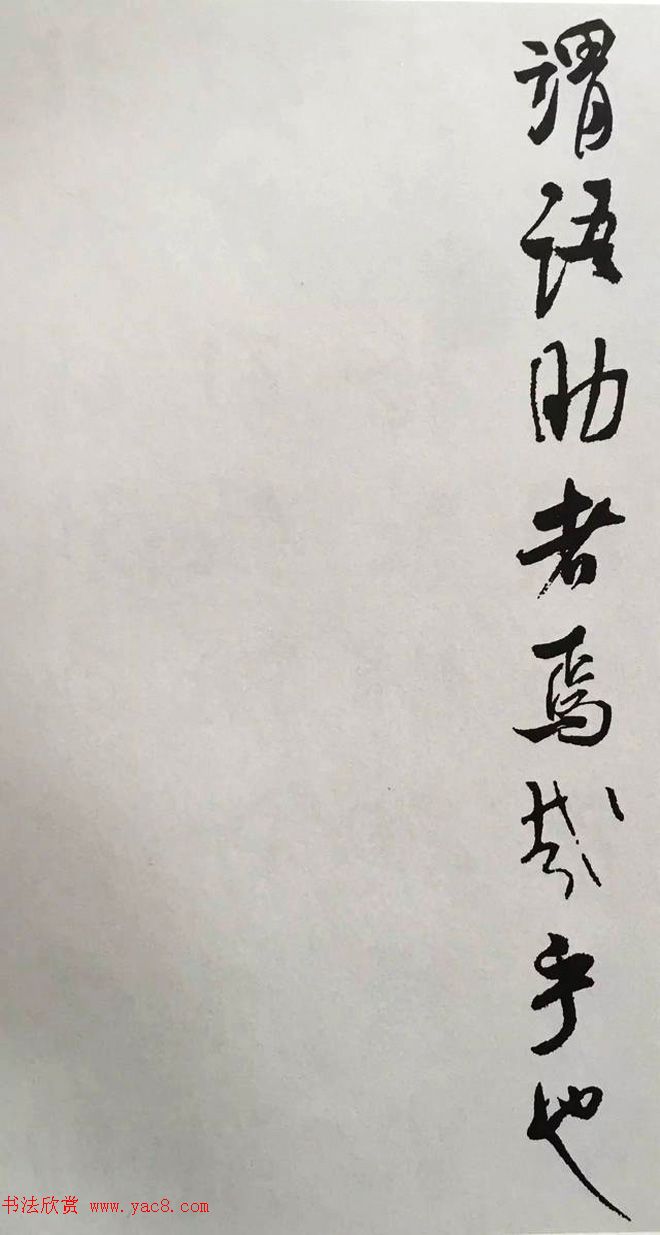 謂語助者焉哉乎也
书法欣赏 www.yac8.com